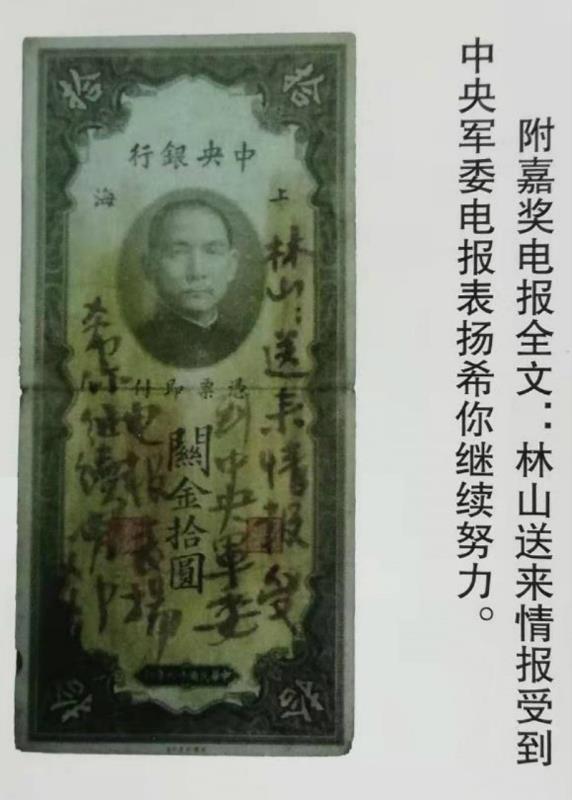 附嘉奖电报全文：林山送来情报受到
中央军委电报表扬希你继续努力。
拾
拾
中央銀行
上
海
憑票即付
關金拾圓
林山：送来情报受
到中央軍委
电报表揚
希你继續努力
拾
拾